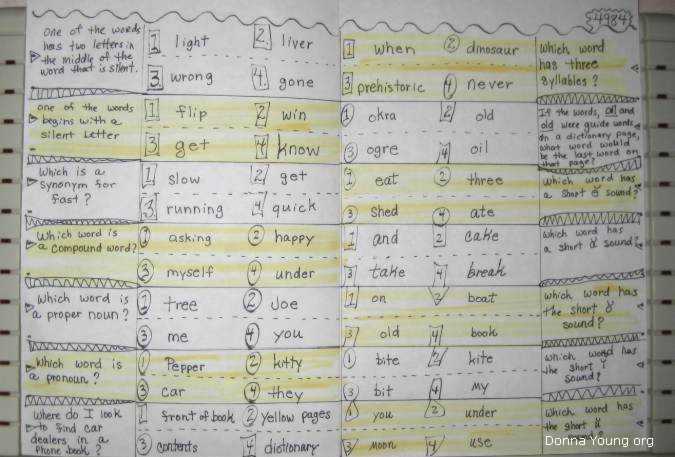 4984
One of the words
has two letters in
the middle of the
word that is silent.
1 light 2 liver
3 wrong 4 gone
One of the words
begins with a
silent letter
1 flip 2 win
3 get 4 know
Which is a
synonym for
fast?
1 slow 2 get
3 running 4 quick
Which word is
a compound word?
1 asking 2 happy
3 myself 4 under
Which word is
a proper noun?
1 tree 2 Joe
3 me 4 you
Which word is
a pronoun?
1 Pepper 2 kitty
3 car 4 they
Where do I look
to find car
dealers in a
Phone book?
1 front of book 2 Yellow pages
3 contents 4 dictionary
1 when 2 dinosaur
3 prehistoric 4 never
Which word
has three
syllables?
1 okra 2 old
3 ogre 4 oil
If the words, oil and
old were guide words
on a dictionary page,
what word would
be the last word on
that page?
1 eat 2 three
3 shed 4 ate
Which word has
a short ĕ sound?
1 and 2 cake
3 take 4 break
Which word has
a short ă sound?
1 on 2 boat
3 old 4 book
Which word has
the short ŏ
sound?
1 bite 2 kite
3 bit 4 my
Which word has
the short ĭ
sound?
1 you 2 under
3 moon 4 use
Which word has
the short ŭ
Donna Young org